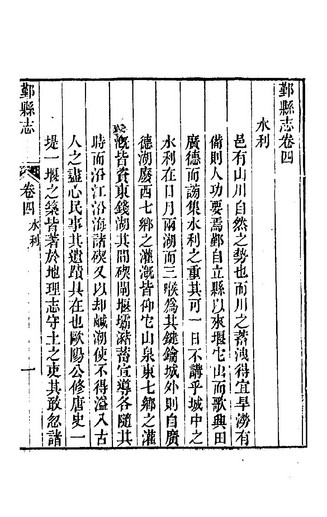 鄞縣志卷四
水利
邑有山川自然之勢也而川之蓄洩得宜旱澇有
備則人功要焉鄞自立縣以來堰它山而歌興田
廣德而謗集水利之重其可一日不講乎城中之
水利在日月兩湖而三喉為其鍵鑰城外則自廣
德湖廢西七鄉之灌漑皆仰它山泉東七鄉之灌
漑皆資東錢湖其間碶閘堰壩瀦蓄宣導各隨其
時而沿江沿海諸碶又以却鹹潮使不得溢入古
人之盡心民事其遺蹟具在也歐陽公修唐史一
堤一堰之築皆著於地理志守土之吏其敢忽諸
鄞縣志
卷四
水利
一